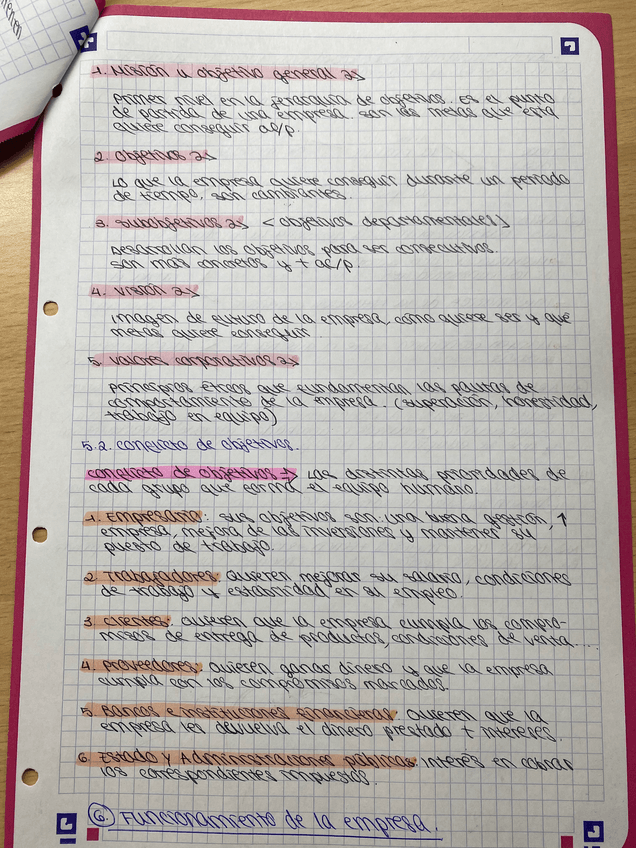 1. Misión u objetivo general →
Primer nivel en la jerarquía de objetivos. es el punto
de partida de una empresa. son las metas que esta
quiere conseguir al/p.
2. objetivos →
Lo que la empresa quiere conseguir durante un periodo
de tiempo, son cambiantes.
3. subobjetivos → <objetivos departamentales>
Desarrollan los objetivos para ser consecutivos.
son más concretos y + ac/p.
4. visión →
Imagen de futuro de la empresa, como quiere ser y que
metas quiere conseguir
5. valores corporativos →
Principios éticos que fundamentan las pautas de
comportamiento de la empresa. (superación, honestidad,
trabajo en equipo)
5.2. conflicto de objetivos.
conflicto de objetivos → Las distintas prioridades de
cada grupo que forma el equipo humano.
1. Empresario: sus objetivos son: una buena gestión, ↑
empresa, mejora de las inversiones y mantener su
puesto de trabajo.
2. Trabajadores: Quieren mejorar su salario, condiciones
de trabajo y estabilidad en su empleo.
3. clientes: Quieren que la empresa cumpla los compro-
misos de entrega de productos, condiciones de venta...
4. Proveedores: Quieren ganar dinero y que la empresa
cumpla con los compromisos marcados.
5. Bancos e instituciones financieras: Quieren que la
empresa les devuelva el dinero prestado + intereses.
6. Estado y Administraciones públicas: interés en cobrar
los correspondientes impuestos.
6. Funcionamiento de la empresa.